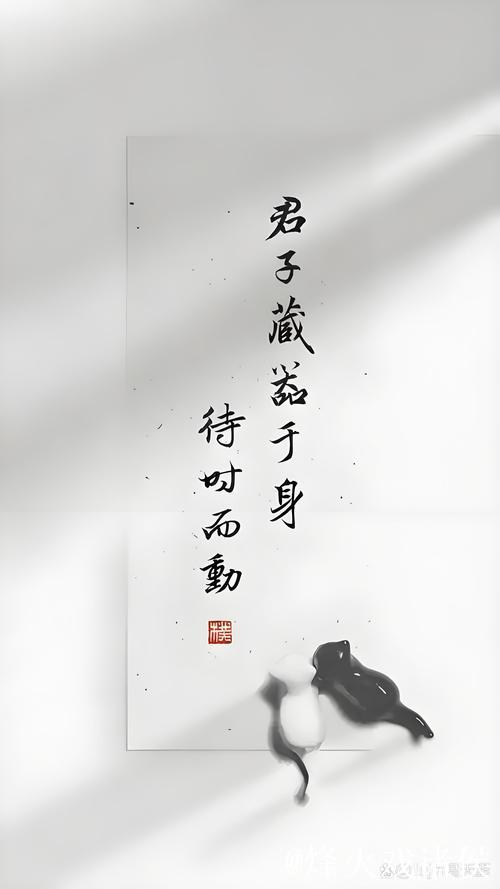 君子藏器于身
待时而動